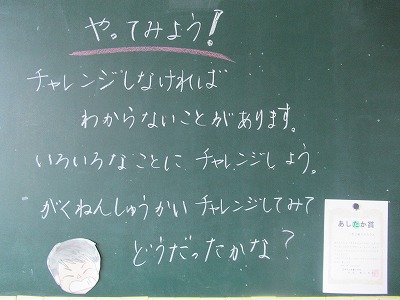 やってみよう!
チャレンジしなければ
わからないことがあります。
いろいろなことに チャレンジしよう。
がくねんしゅうかい チャレンジしてみて
どうだったかな?
あしたか賞